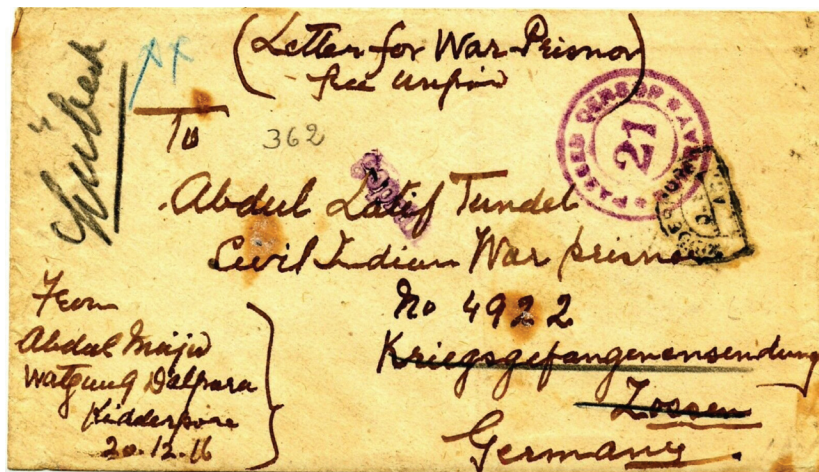 (Letter for War Prisnor)
free
Lübeck
To
362
PASSED CENSOR
21
Abdul Latif Tundel
Civil Indian War prisner
No 4922
Kriegsgefangenensendung
Zossen
Germany.
From
Abdul
Watgung
Kidderpore
20.12.16